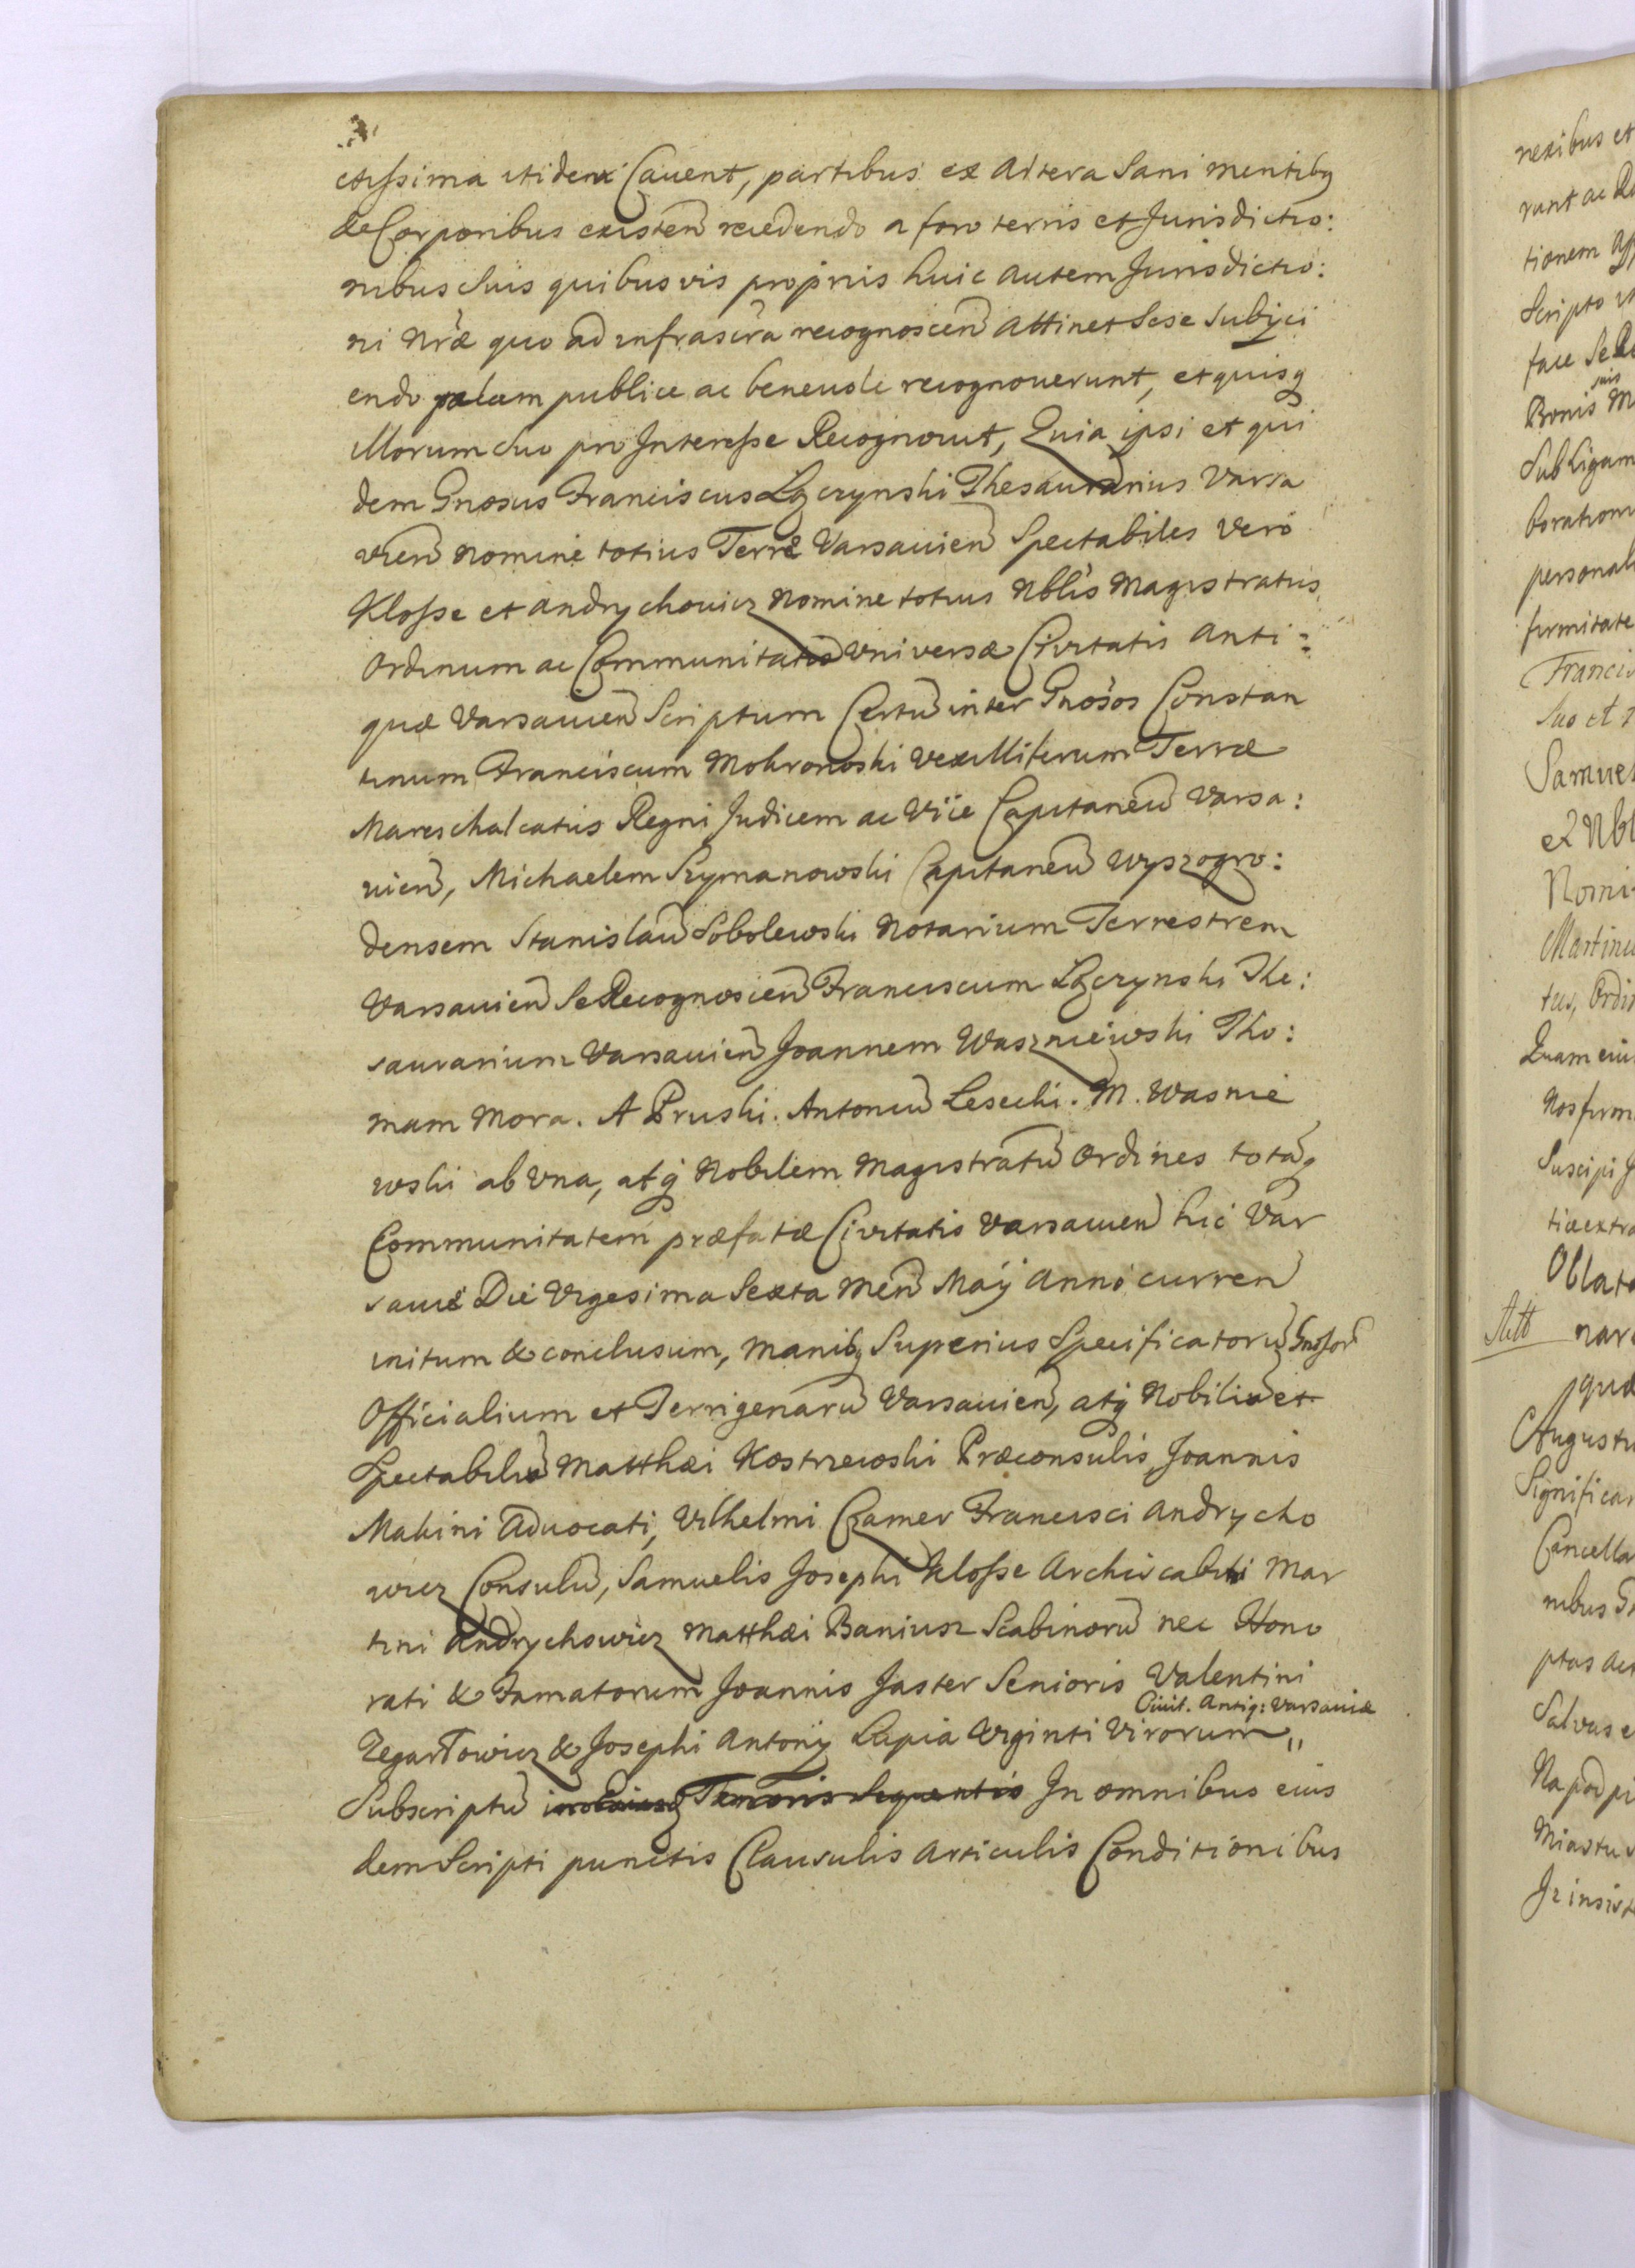 ctissima itidem Cavent, partibus ex Altera Sani mentibq
& Corporibus existen recedendo a foro terris et Jurisdictio:
nibus Suis quibusvis proprijs huic autem Jurisdictio:
ni Nræ quo ad infrascra recognoscen attinet Sese Subijci
endo palam publice ac benevole recognoverunt, et quisq
Illorum Suo pro Interesse Recognovit, Quia ipsi et qui
dem Gnosus Franciscus Łączynski Thesaurarius Varsa
vien nomine totius Terræ Varsavien Spectabiles Vero
Klosse et Andrychowicz Nomine totius Nblis Magistratus
Ordinum ac Communitatis Universæ Civitatis Anti:
quæ Varsavien Scriptum Certu inter Gnosos Constan
tinum Franciscum Mokronoski Vexilliferum Terræ
Mareschalcatus Regni Judicem ac Vice Capitaneu Varsa:
vien, Michaelem Szymanowski Capitaneu Wyszogro:
densem Stanislau Sobolewski Notarium Terrestrem
Varsavien Se Recognoscen Franciscum Łączynski The:
saurarium Varsavien Joannem Waszniewski Tho:
mam Mora. A Pruski. Antoniu Lesecki. M. Wasnie
wski ab Una, atq Nobilem Magistratu Ordines totaq
Communitatem præfatæ Civitatis Varsavien hic Var
saviæ Die Vigesima Sexta Men Maij Anno curren
initum & conclusum, Manibq Superius Specificatoru Gnosor
Officialium et Terrigenaru Varsavien, atq Nobiliu et
Spectabiliu Matthæi Kostrzewski Præconsulis, Joannis
Makini Advocati, Vilhelmi Czamer Francisci Andrycho
wicz Consulu, Samuelis Josephi Klosse Archiscabini Mar
tini Andrychowicz Matthæi Baniusz Scabinoru nec Hono
rati & Famatorum Joannis Jaster Senioris Valentini
Civit. Antiq: Varsaviæ
Zegartowicz & Josephi Antonij Lupia Viginti Virorum „
Subscriptu Tenoris Sequentis In omnibus eius
dem Scripti punctis Clausulis Articulis Conditionibus
nexibus et
runt ac
tionem
Scripto
face Se
suis
Bonis
Sub Ligam
boration
personal
firmitate
Francis
Suo et
Samuel
et Nbl
Nomi
Martinu
tus, Ordi
Quam eius
Nos firm
Suscipi
tiæ extra
Oblata
nar
quæ
Augustu
Significa
Cancella
nibus
ptas act
Salvas e
Na pod pi
Miastu
Iz insist